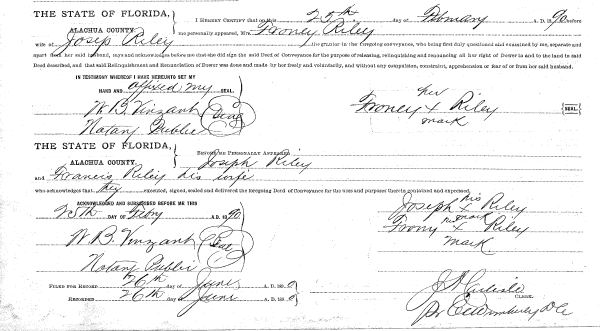 THE STATE OF FLORIDA,
ALACHUA COUNTY.
I HEREBY CERTIFY that on this 25th day of February A. D. 1890 before
me personally appeared, Mrs. Froney Riley
wife of Josep Riley the grantor in the foregoing conveyance, who being first duly questioned and examined by me, separate and
apart from her said husband, says and acknowledges before me that she did sign the said Deed of Conveyance for the purpose of releasing, relinquishing and renouncing all her right of Dower in and to the land in said
Deed described, and that said Relinquishment and Renunciation of Dower was done and made by her freely and voluntarily, and without any compulsion, constraint, apprehension or fear of or from her said husband.
IN TESTIMONY WHEREOF I HAVE HEREUNTO SET MY
HAND AND affixed my SEAL.
W. B. Vinzant
Notary Public
Seal
her
Froney x Riley
mark
SEAL.
THE STATE OF FLORIDA,
ALACHUA COUNTY.
BEFORE ME PERSONALLY APPEARED
Joseph Riley
and Francis Riley his wife
who acknowledges that they executed, signed, sealed and delivered the foregoing Deed of Conveyance for the uses and purposes therein contained and expressed.
ACKNOWLEDGED AND SUBSCRIBED BEFORE ME THIS
25th DAY OF Febry A. D. 1890
W. B. Vinzant
Notary Public
Seal
his
Joseph x Riley
mark
her
Frony x Riley
mark
FILED FOR RECORD 26th day of June A. D. 189
RECORDED 26th day of June A. D. 189
CLERK.
Wimberly D.C.